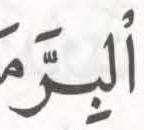 ألبِرَّ مَ